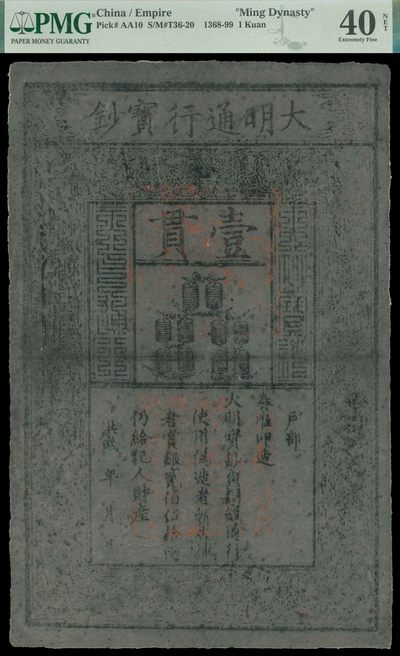 PMG
PAPER MONEY GUARANTY
China / Empire "Ming Dynasty"
Pick# AA10 S/M#T36-20 1368-99 1 Kuan
40 NET
Extremely Fine
大明通行寶鈔
壹貫
戶部
奏准印造
大明寶鈔與銅錢通行
使用偽造者斬
者賞銀貳佰伍拾兩
仍給犯人財產
洪武 年 月